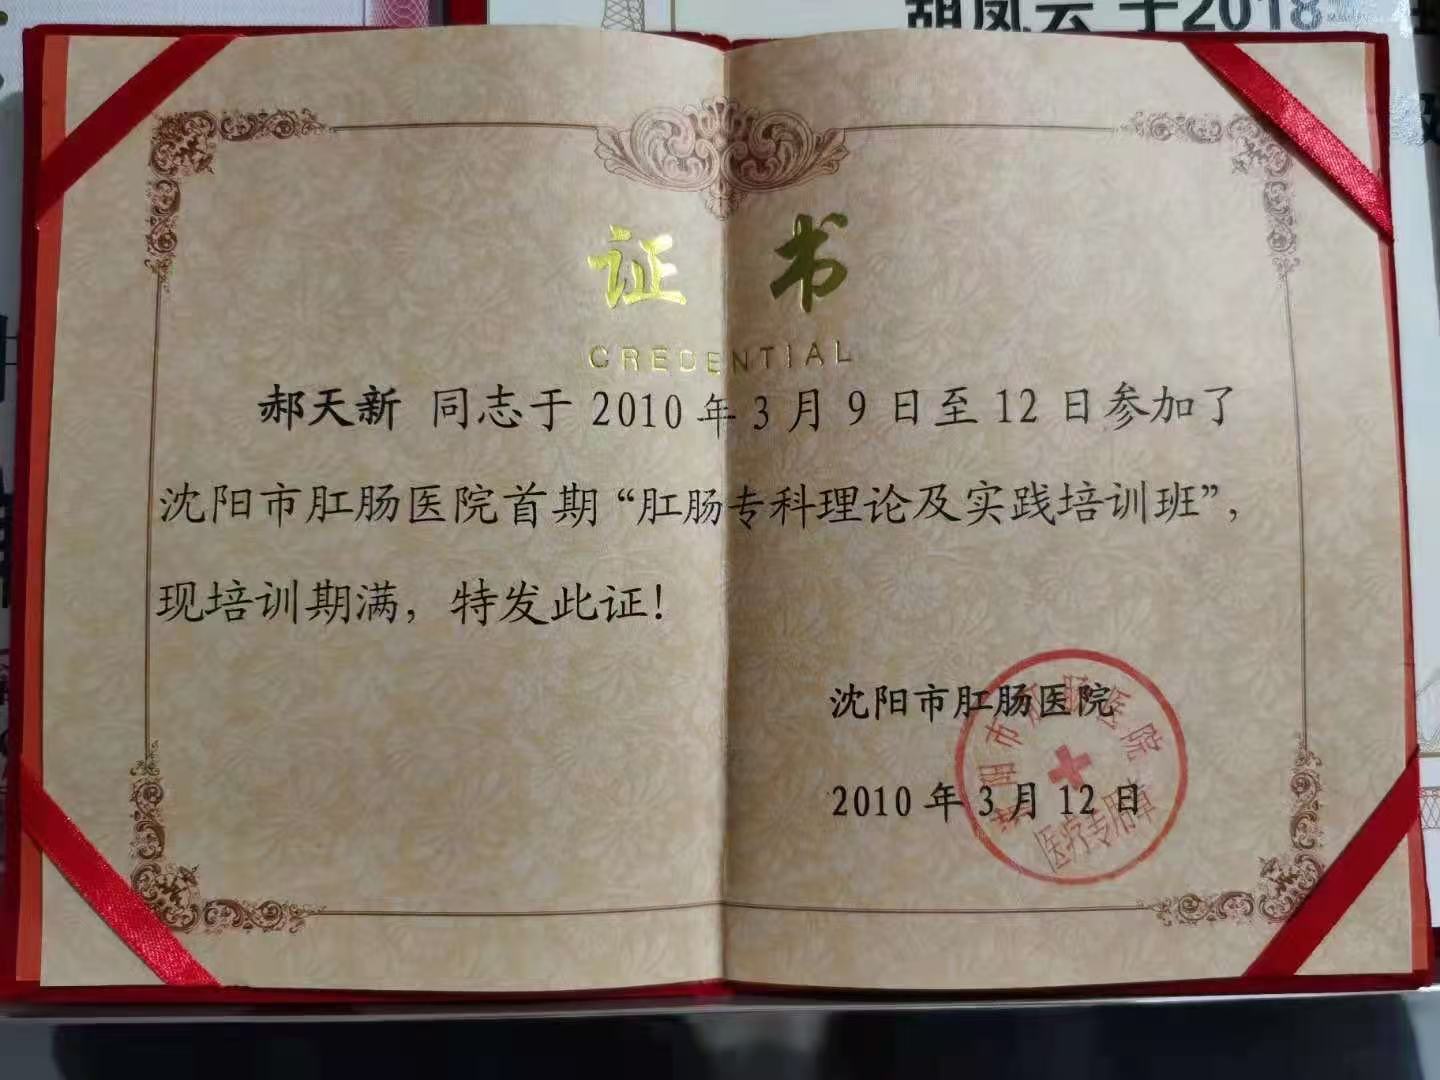 胡凤云 于2018
证书
CREDENTIAL
郝天新 同志于 2010 年 3 月 9 日至 12 日参加了
沈阳市肛肠医院首期“肛肠专科理论及实践培训班”，
现培训期满，特发此证！
沈阳市肛肠医院
2010 年 3 月 12 日
沈阳市肛肠医院
医疗专用章